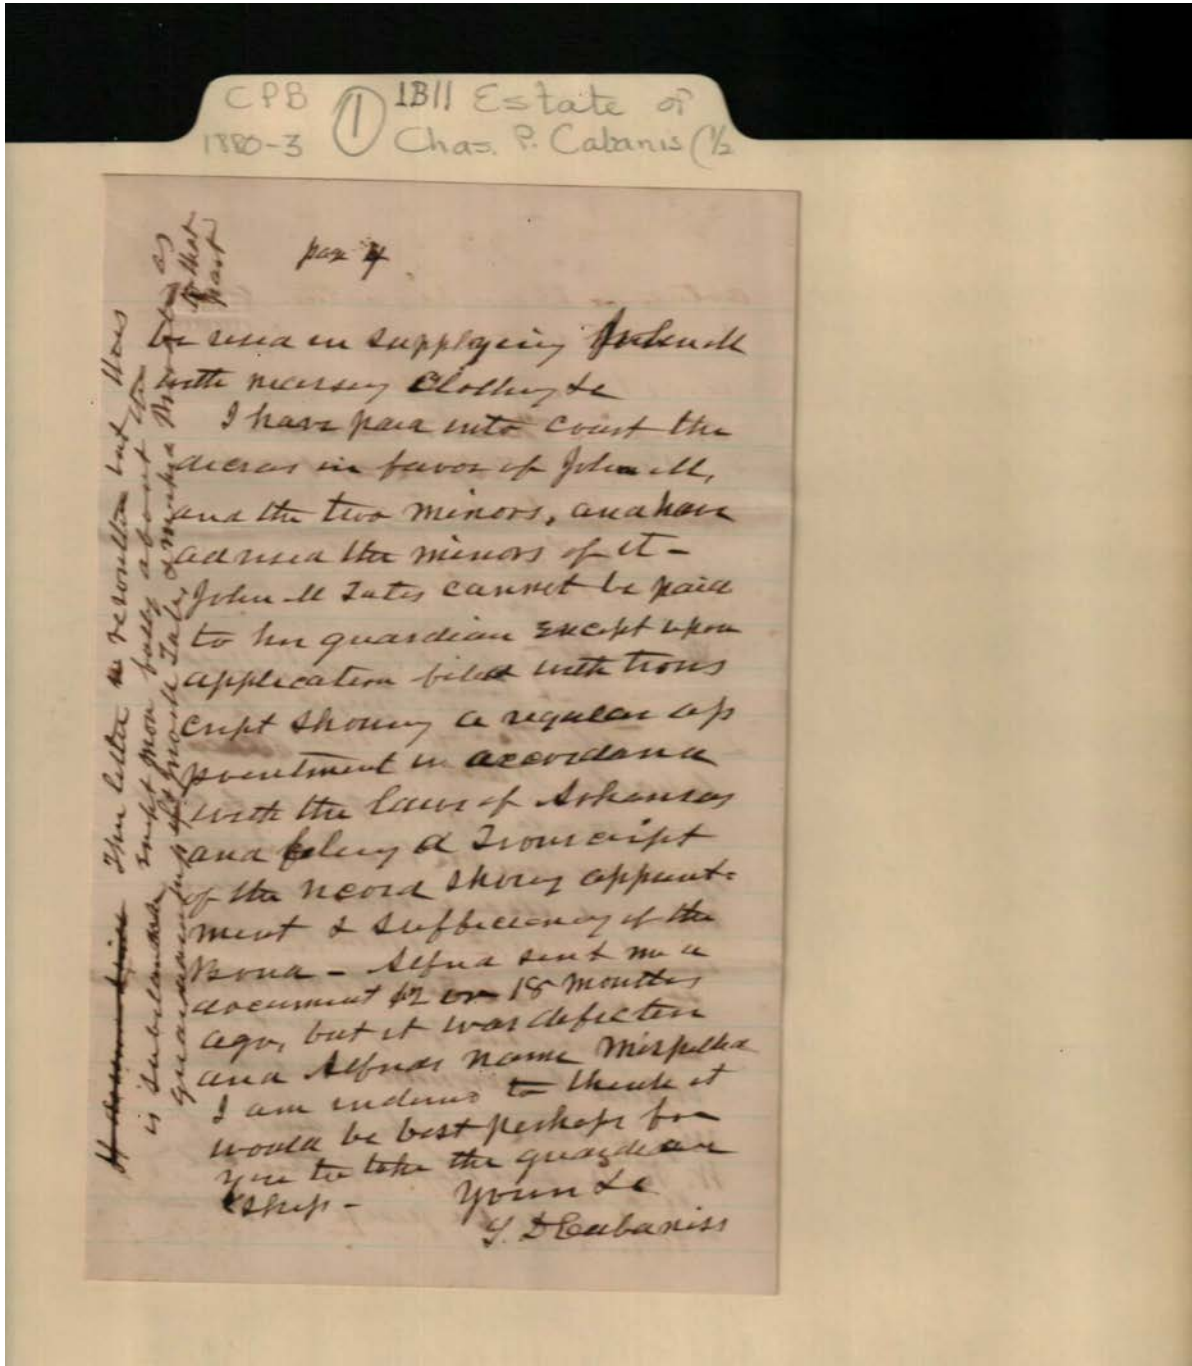 CPB ① 1B11 Estate of
1880-3 Chas. P. Cabanis (1/2
page 4
be used in supplying John M
with necessary clothing &c
I have paid into court the
decrees in favor of John M,
and the two minors, and have
advised the minors of it -
John M Tates cannot be paid
to her guardian except upon
application filed with trans
cript showing a regular ap
pointment in accordance
with the laws of Arkansas
and filing a Transcript
of the record showing appoint-
ment & sufficiency of the
Bond - Alfred sent me a
document 12 or 18 months
ago, but it was defective
and Alfreds name mispelled
I am inclined to think it
would be best perhaps for
you to take the guardian
ship - Yours &c
S. D Cabaniss
This letter is rewritten but this
is substance except more fully about the
guardianship of John M Tate,
as
to that
part